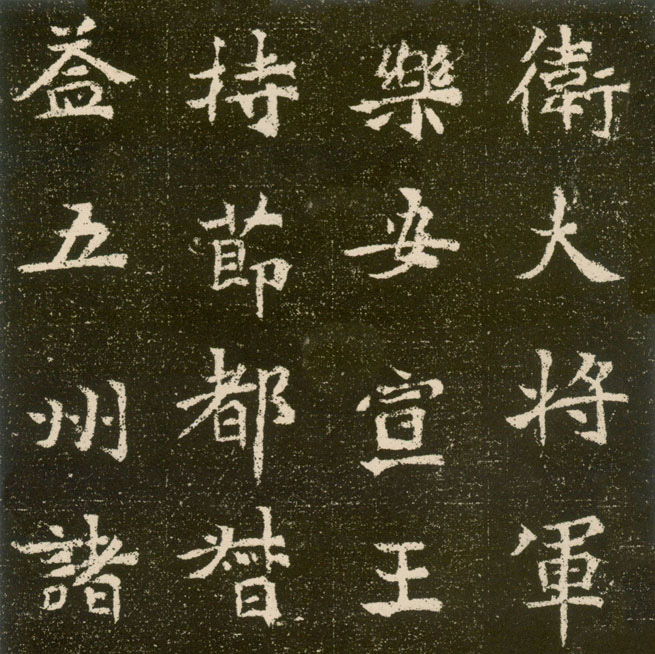 衛大將軍
樂安宣王
持節都督
益五州諸